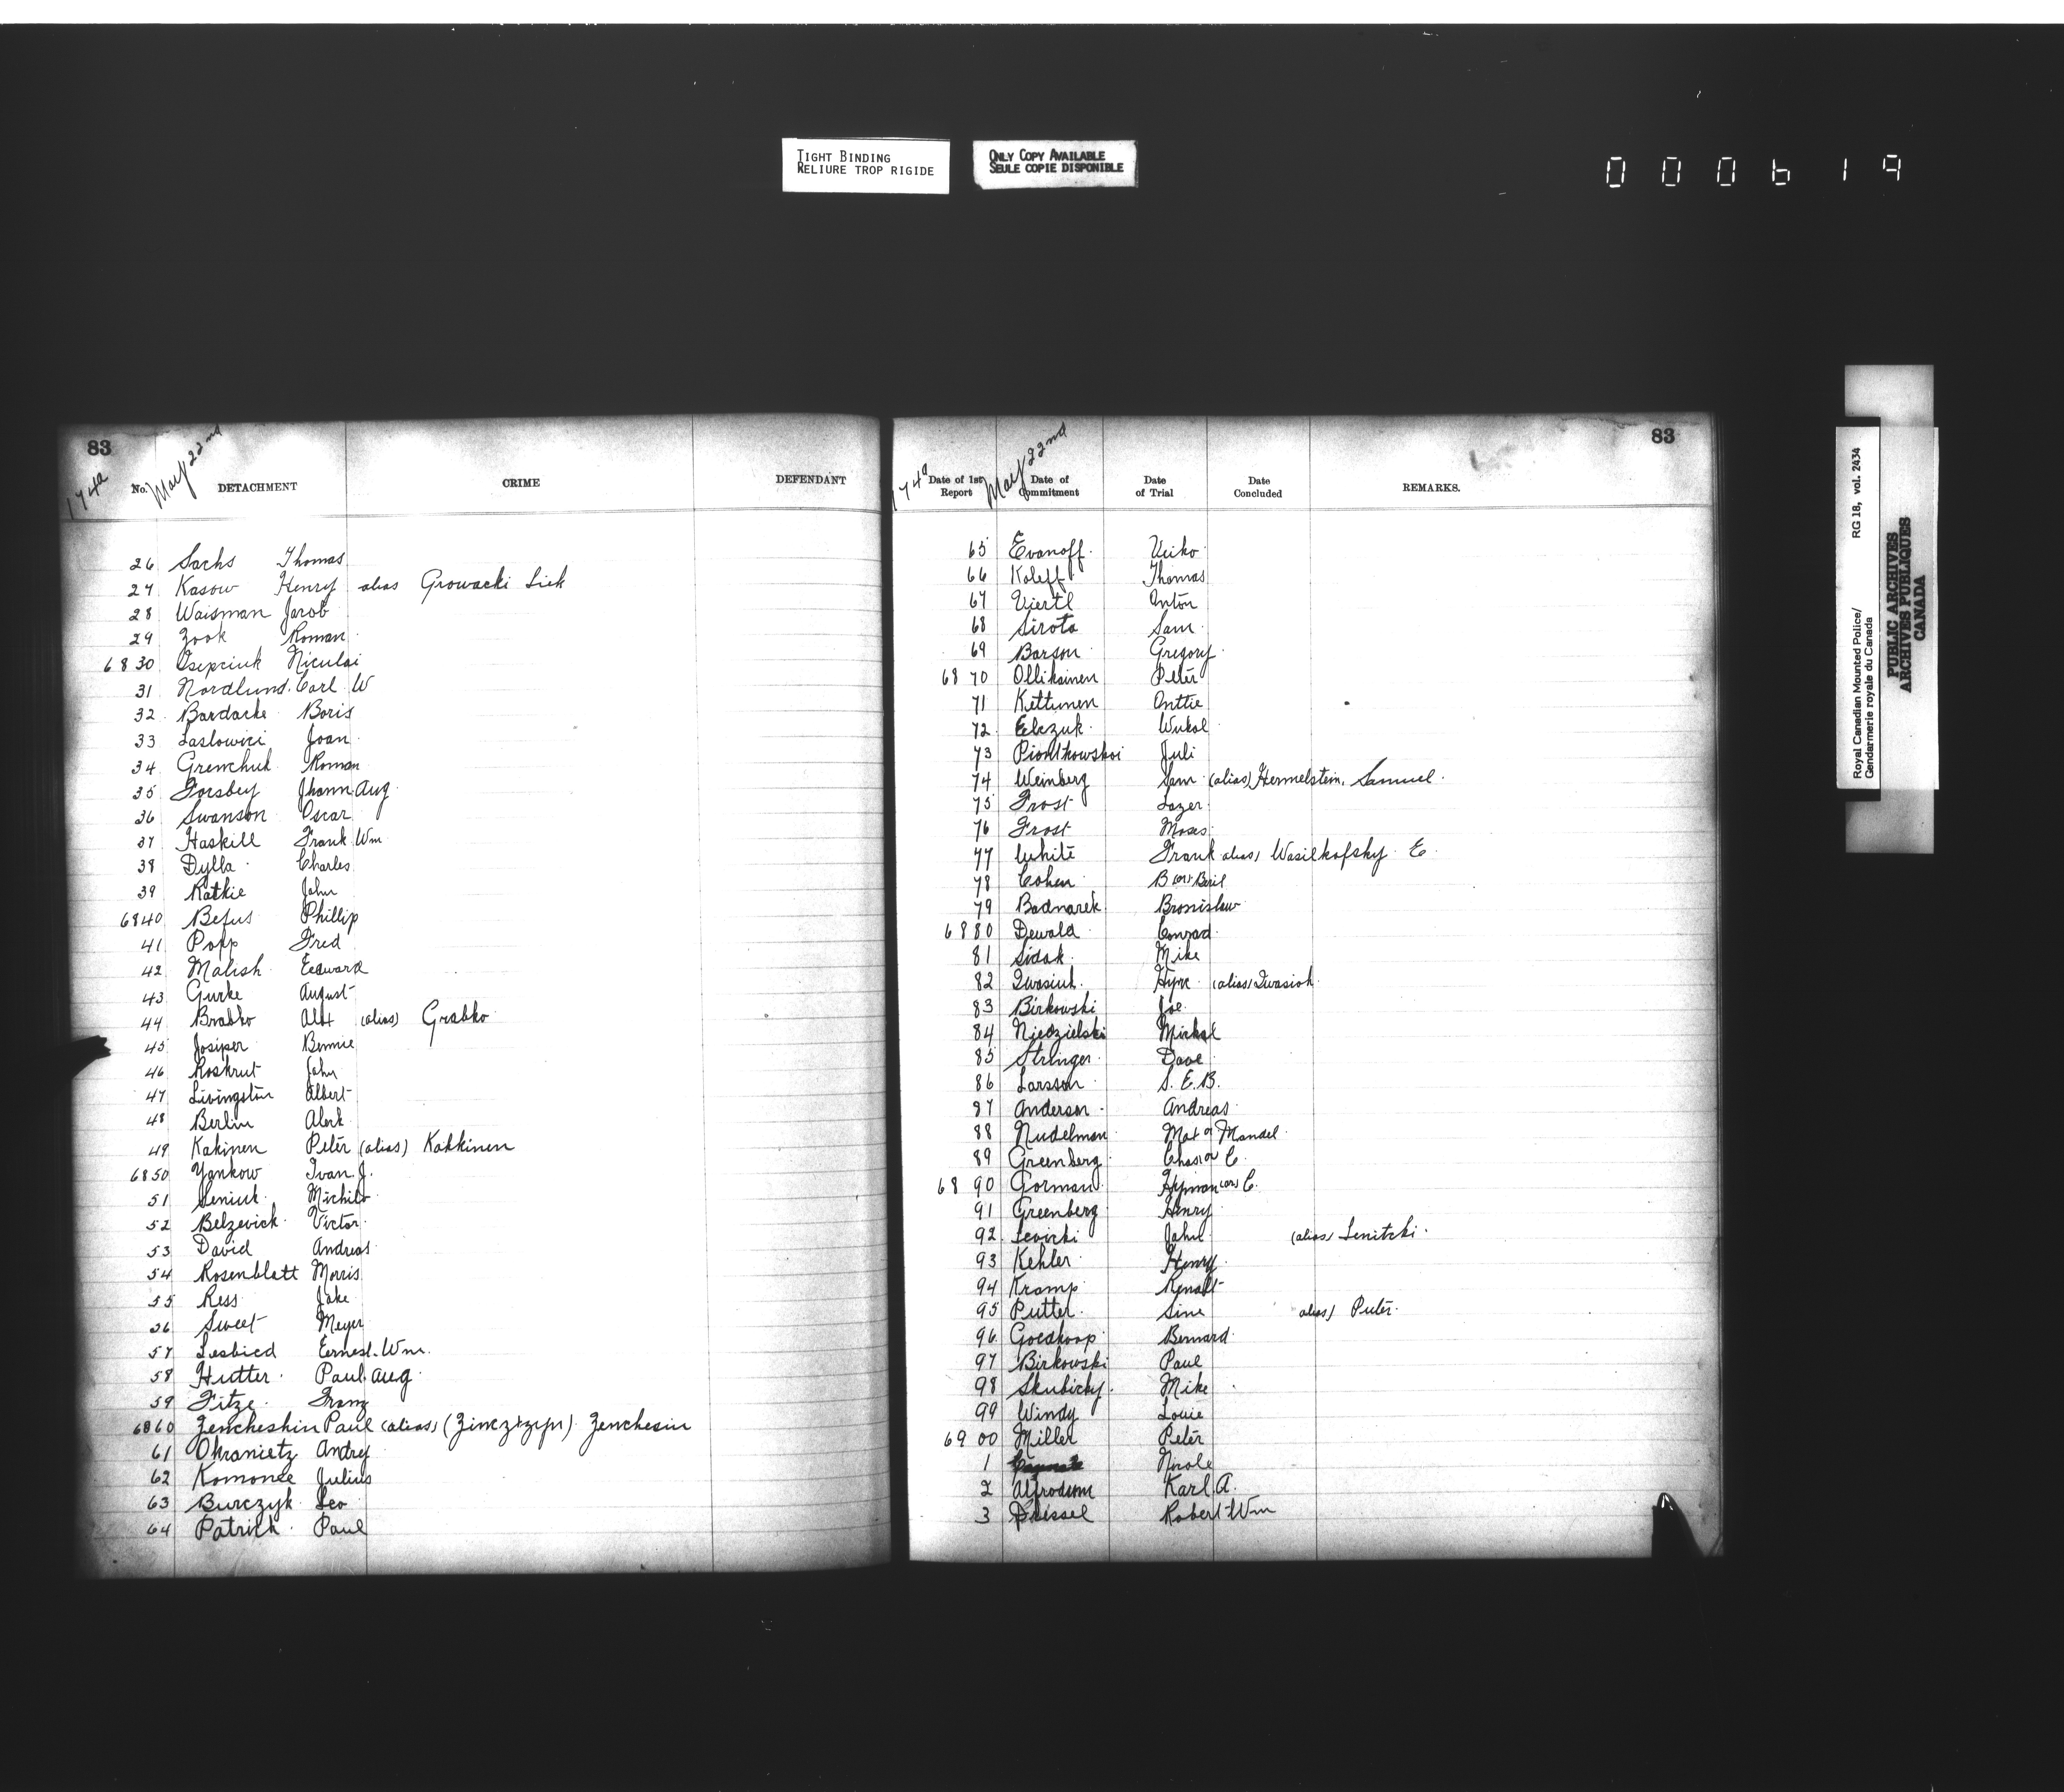 TIGHT BINDING
RELIURE TROP RIGIDE
ONLY COPY AVAILABLE
SEULE COPIE DISPONIBLE
000619
83
174a
May 22nd
No. DETACHMENT CRIME DEFENDANT
26 Sachs Thomas
27 Kasow Henry alias Growacki Sick
28 Waisman Jacob
29 Zook Roman
6830 Osepciuk Niculai
31 Nordlund. Carl W
32 Bardacke Boris
33 Laslowici Joan
34 Grenchuk Roman
35 Forsbey Jhonn Aug
36 Swanson Oscar
37 Haskill Frank Wm
38 Dylla Charles
39 Katkie John
6840 Befus Phillip
41 Popp Fred
42 Malish Edward
43 Gurke August
44 Brabko Alex (alias) Grabko
45 Josiper Bennie
46 Koskrut John
47 Livingston Albert
48 Berlin Aleck
49 Kakinen Peter (alias) Kakkinen
6850 Yankow Ivan J.
51 Seniuk Michilo
52 Belzevick Victor
53 David Andreas
54 Rosenblatt Morris
55 Ress Jake
56 Sweet Meyer
57 Lesbied Ernest. Wm.
58 Hutter Paul Aug
59 Fitze Franz
6860 Zencheshin Paul (alias) (Zincztzyn) Zenchesin
61 Okranietz Andry
62 Komonce Julius
63 Burczyk Leo
64 Patrick Paul
83
174a
May 22nd
Date of 1st Report Date of Commitment Date of Trial Date Concluded REMARKS.
65 Evanoff Veiko
66 Koleff Thomas
67 Viertl Anton
68 Sirota Sam
69 Barson Gregory
6870 Ollikainen Peter
71 Kettunen Anttie
72 Elezuk Wukol
73 Piontkowskoi Juli
74 Weinberg Sam (alias) Hermelstein, Samuel
75 Frost Lazer
76 Frost Moses
77 White Frank alias) Wasilkofsky E
78 Cohen B (or) Beril
79 Badnarek Bronislaw
6880 Dewald Conrad
81 Sidak Mike
82 Iwasiuk Hync (alias) Iwasioh
83 Birkowski Joe
84 Niedzielski Michal
85 Stringer Dave
86 Larsson S. E. B.
87 Anderson Andreas
88 Nudelman Mat or Mandel
89 Greenberg Chas or C.
6890 Gorman Hyman (or) C.
91 Greenberg Henry
92 Levicki John (alias) Lenitzki
93 Kehler Henry
94 Kramp Renalt
95 Putter Sine alias) Puter
96 Goedkoop Bernard
97 Birkowski Paul
98 Skubicky Mike
99 Windy Louie
6900 Miller Peter
1 Nicole
2 Alfrodson Karl A.
3 Driessel Robert Wm
Royal Canadian Mounted Police/
Gendarmerie royale du Canada
RG 18, vol. 2434
PUBLIC ARCHIVES
ARCHIVES PUBLIQUES
CANADA